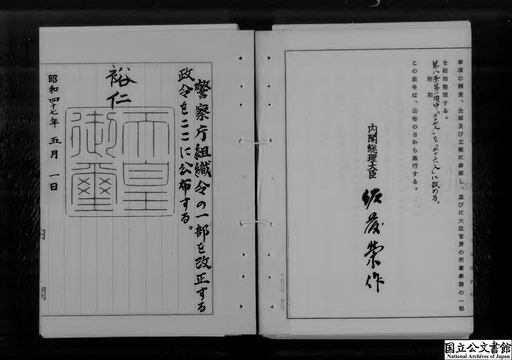 警察庁組織令の一部を改正する
政令をここに公布する。
裕仁
天皇
御璽
昭和四十七年 五月 一日
事項の調査、企画及び立案に参画し、並びに大臣官房の所掌事務の一部
を総括整理する。
附則
この政令は、公布の日から施行する。
内閣総理大臣 佐藤榮作
国立公文書館
National Archives of Japan